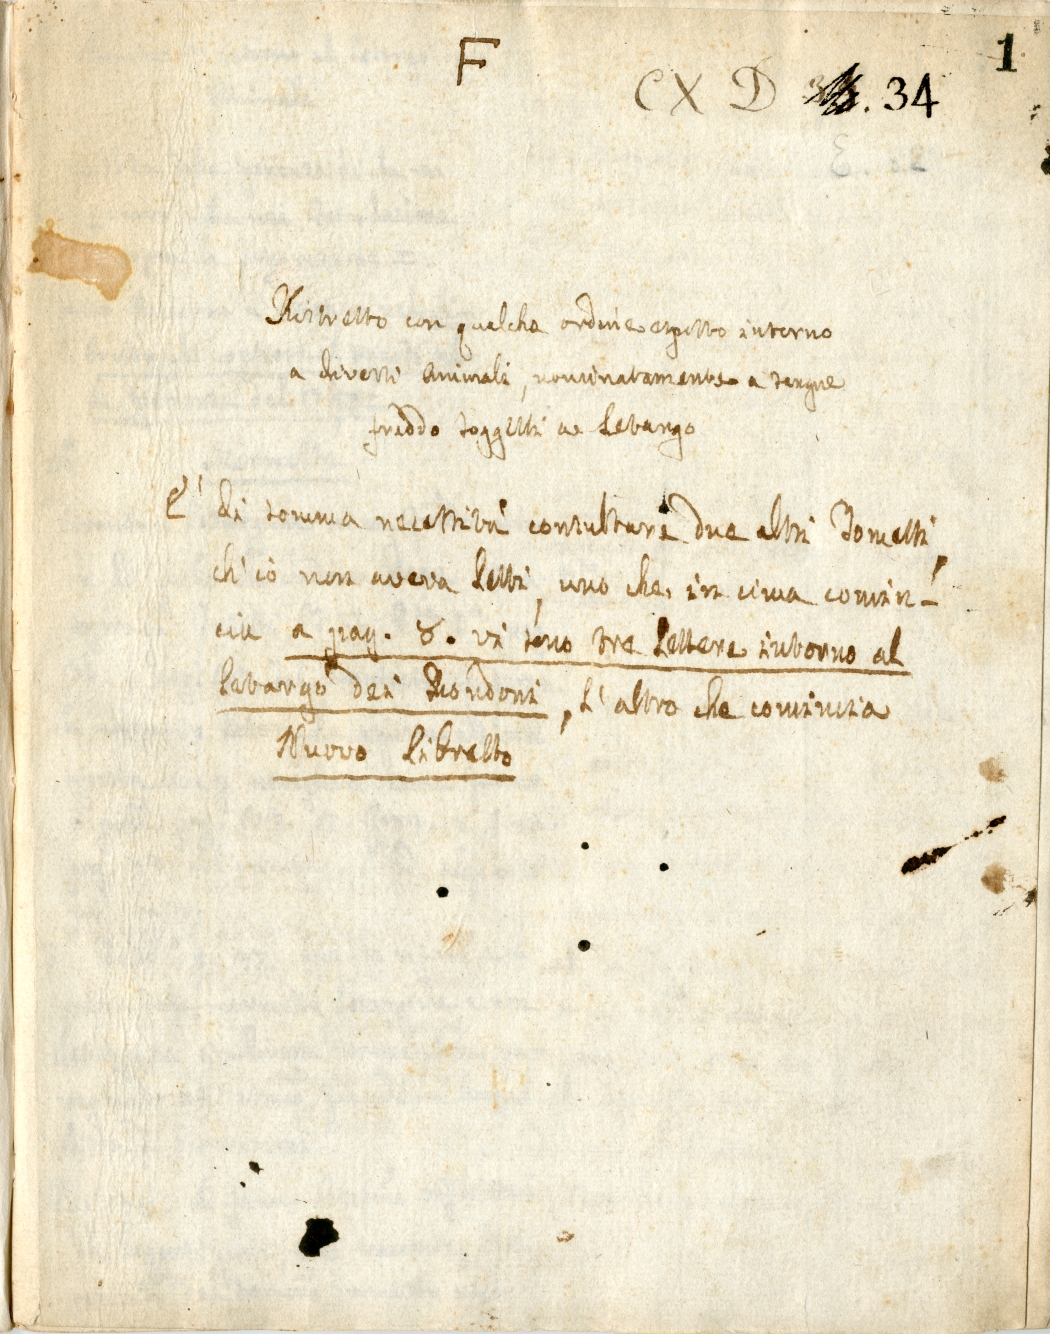 F
1
CXD . 34
Ristretto con qualche ordine esposto intorno
a diversi animali, nominatamente a sangue
freddo soggetti al letargo
E' di somma necessità consultare due altri Tometti,
ch'io non aveva letti, uno che in cima comin-
cia a pag. 8. vi sono tre Lettere intorno al
letargo dei Rondoni, l'altro che comincia
Nuovo Libretto